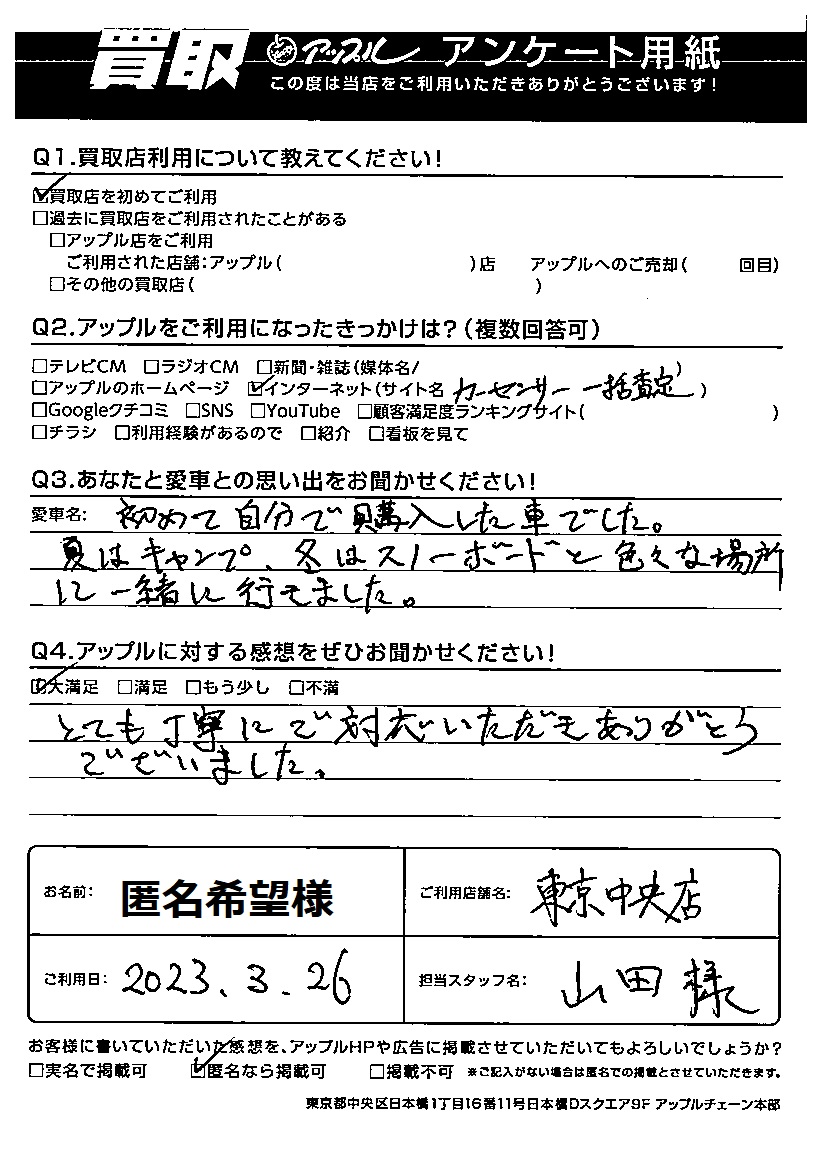 買取 アップル アンケート用紙
この度は当店をご利用いただきありがとうございます!
Q1.買取店利用について教えてください!
☑買取店を初めてご利用
□過去に買取店をご利用されたことがある
□アップル店をご利用
ご利用された店舗:アップル( )店 アップルへのご売却( 回目)
□その他の買取店( )
Q2.アップルをご利用になったきっかけは?(複数回答可)
□テレビCM □ラジオCM □新聞・雑誌(媒体名/ )
□アップルのホームページ ☑インターネット(サイト名 カーセンサー 一括査定 )
□Googleクチコミ □SNS □YouTube □顧客満足度ランキングサイト( )
□チラシ □利用経験があるので □紹介 □看板を見て
Q3.あなたと愛車との思い出をお聞かせください!
愛車名: 初めて自分で購入した車でした。
夏はキャンプ、冬はスノーボードと色々な場所
に一緒に行えました。
Q4.アップルに対する感想をぜひお聞かせください!
☑大満足 □満足 □もう少し □不満
とても丁寧にご対応いただきありがとう
ございました。
お名前: 匿名希望様 ご利用店舗名: 東京中央店
ご利用日: 2023.3.26 担当スタッフ名: 山田様
お客様に書いていただいた感想を、アップルHPや広告に掲載させていただいてもよろしいでしょうか?
□実名で掲載可 ☑匿名なら掲載可 □掲載不可 ※ご記入がない場合は匿名での掲載とさせていただきます。
東京都中央区日本橋1丁目16番11号日本橋Dスクエア9F アップルチェーン本部